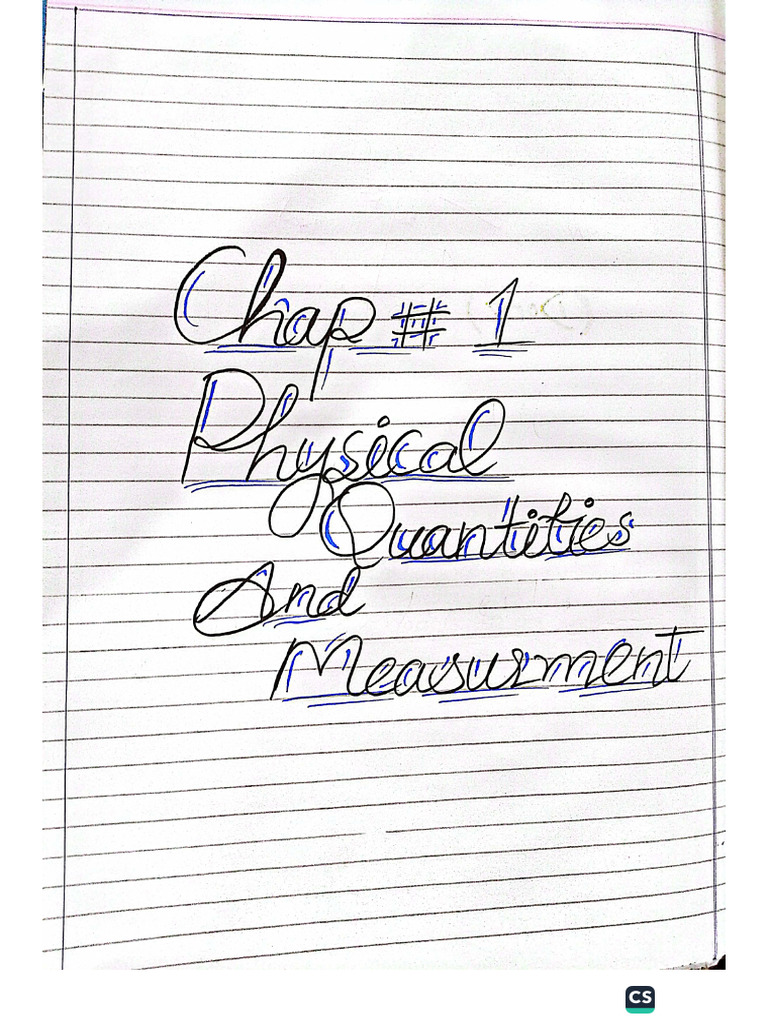 Chap # 1
Physical
Quantities
And
Measurment
CS